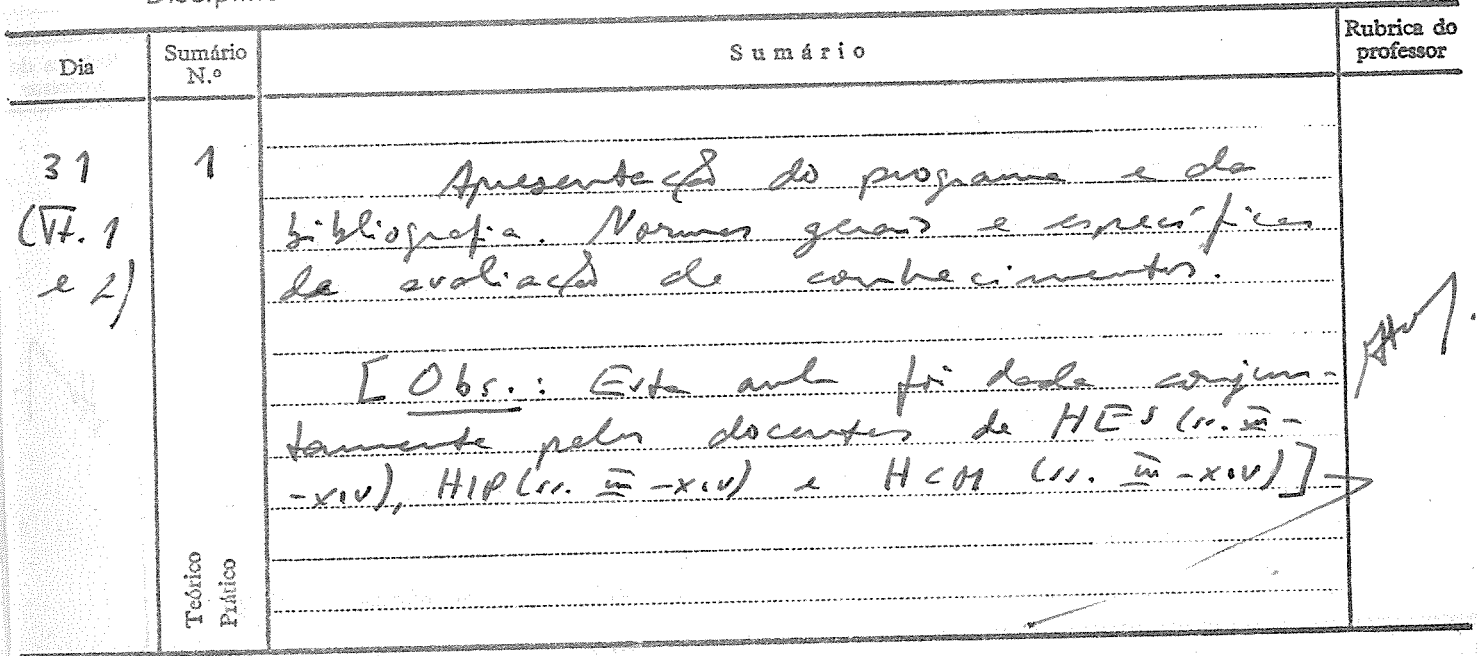 Dia
Sumário N.º
Sumário
Rubrica do professor
31
(VT. 1
e 2)
1
Apresentação do programa e da
bibliografia. Normas gerais e específicas
de avaliação de conhecimentos.
[Obs.: Esta aula foi dada conjun-
tamente pelos docentes de HES (ss. III-
-XIV), HIP (ss. III-XIV) e HCM (ss. III-XIV)]
Teórico
Prático